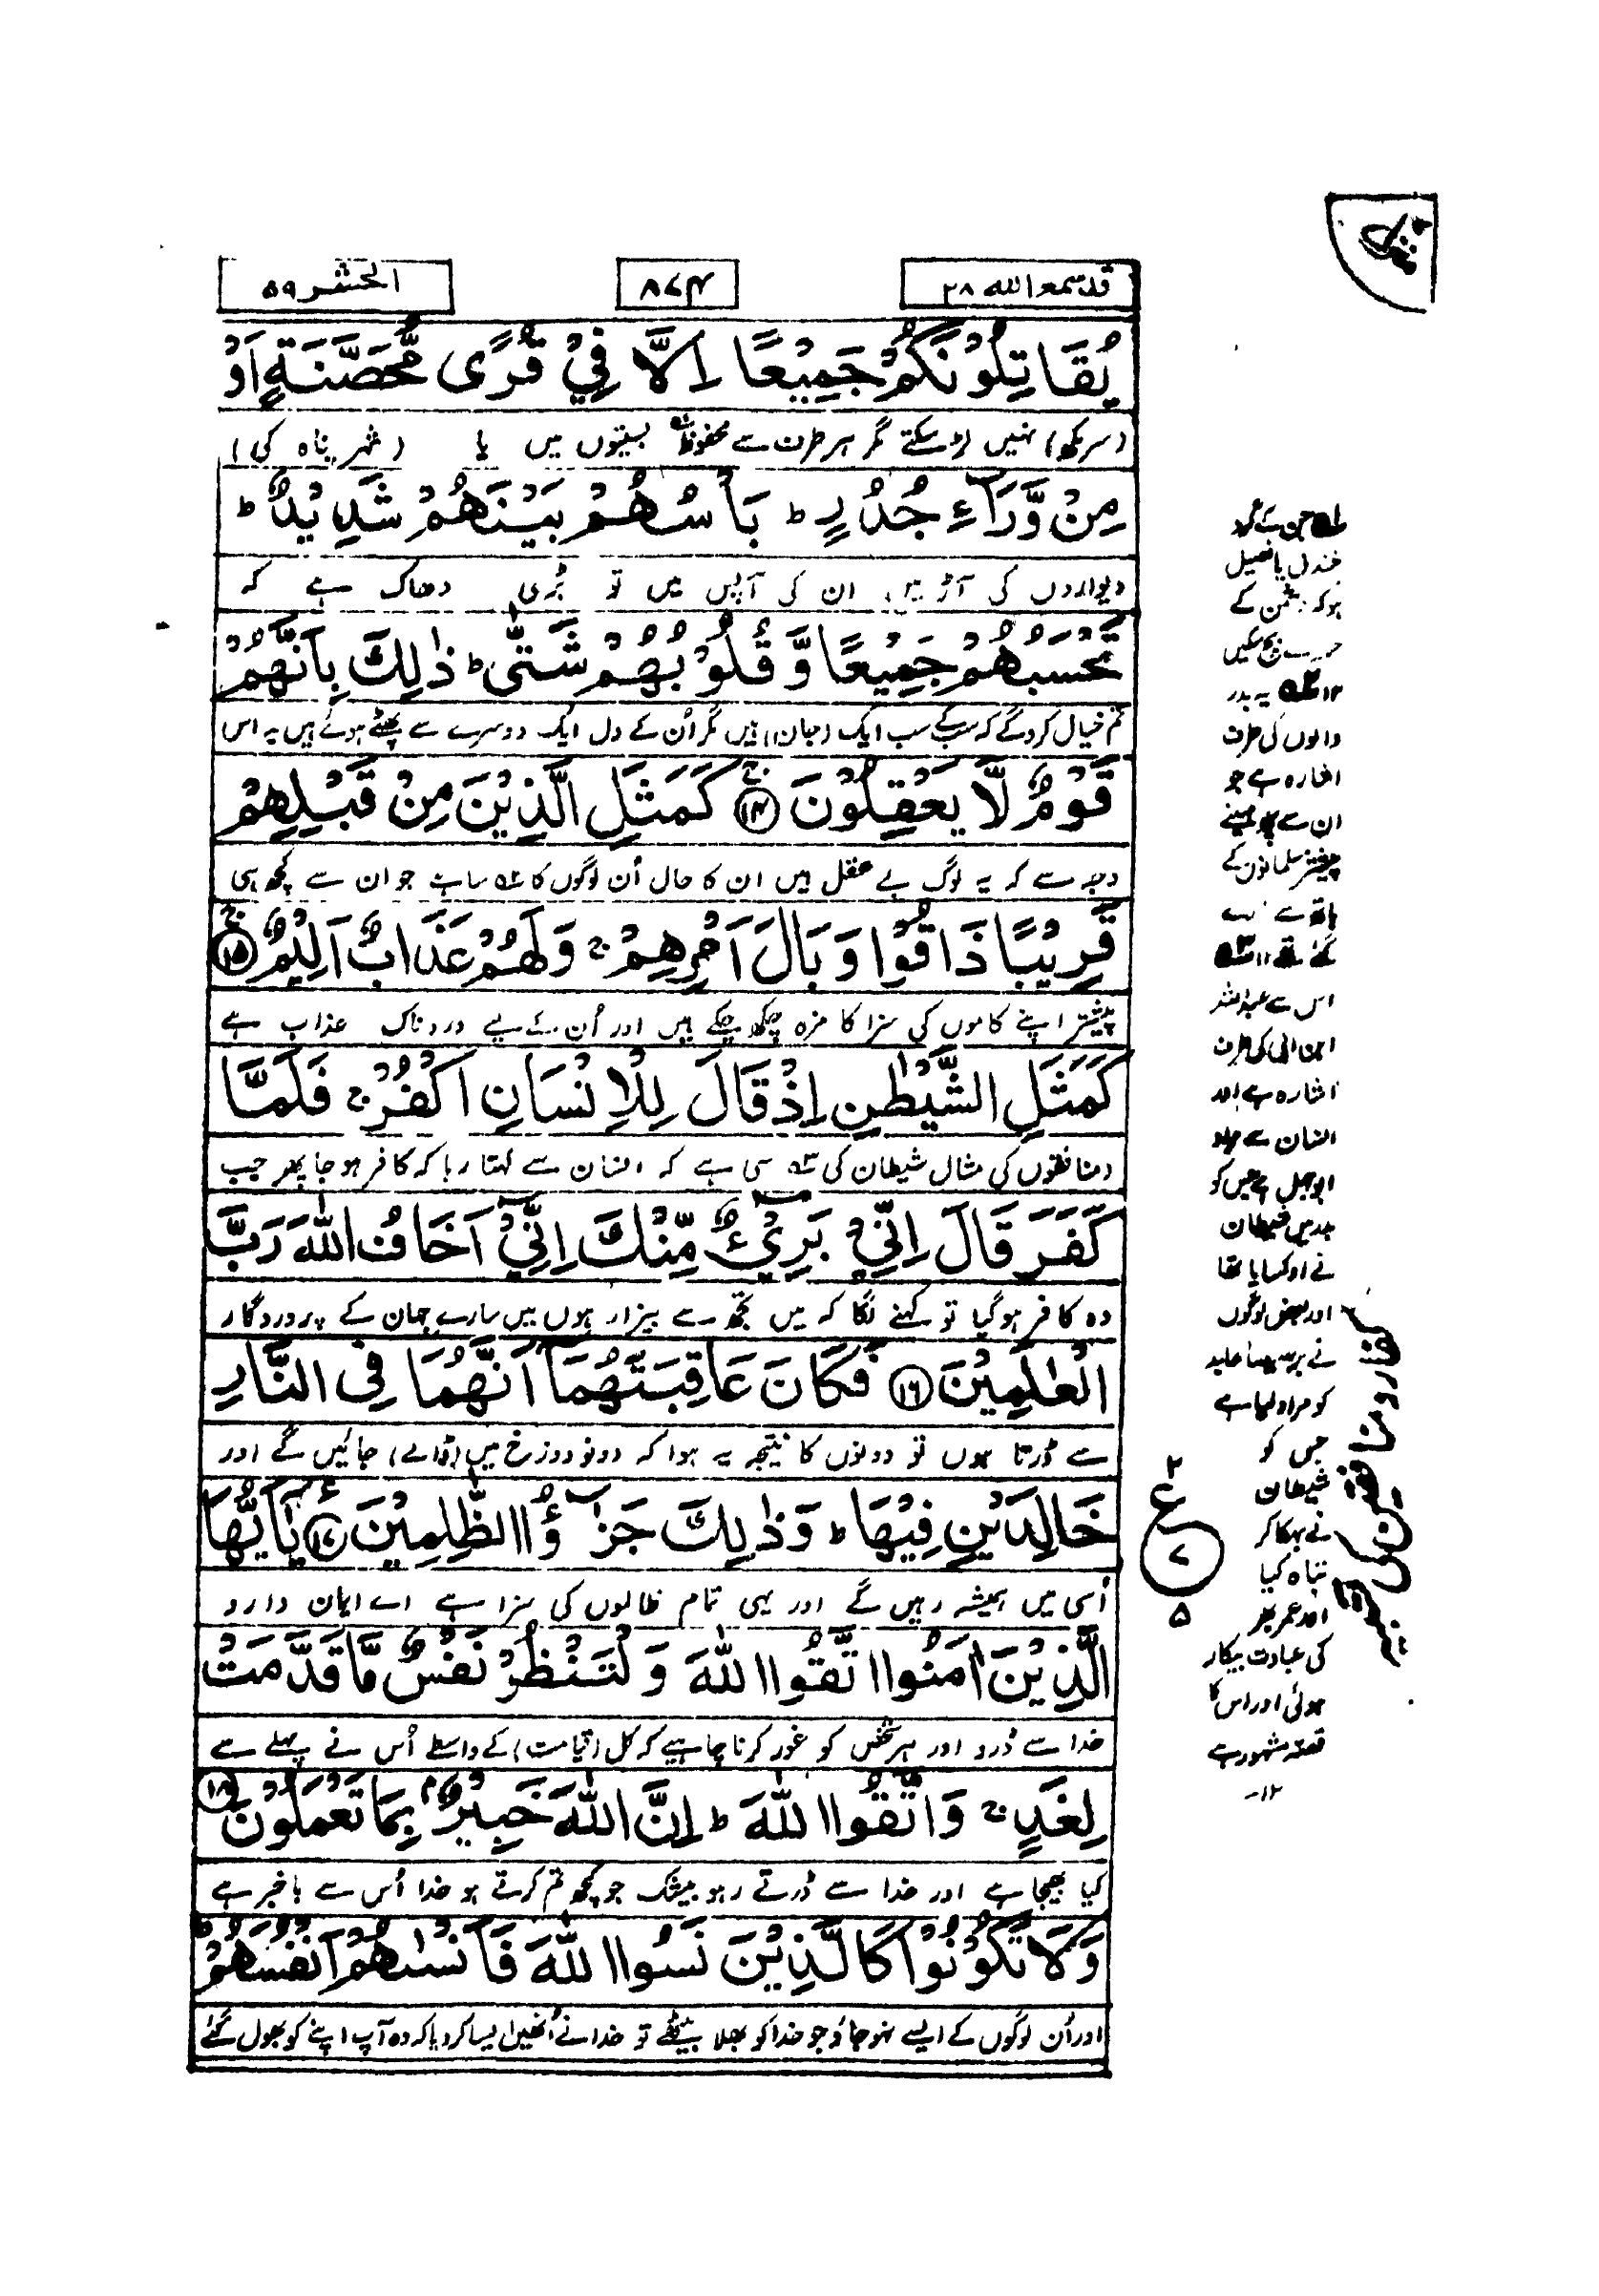 قد سمع الله ۲۸
۸۷۴
الحشر ۵۹
يُقَاتِلُوْنَكُمْ جَمِيْعًا اِلَّا فِيْ قُرًى مُّحَصَّنَةٍ اَوْ
(سر بکھ) نہیں لڑ سکتے مگر ہر طرف سے محفوظ بستیوں میں یا (شہر پناہ کی)
مِنْ وَّرَآءِ جُدُرٍ ؕ بَاْسُهُمْ بَيْنَهُمْ شَدِيْدٌ ؕ
دیواروں کی آڑ میں ان کی آپس میں تو بڑی دھاک ہے کہ
تَحْسَبُهُمْ جَمِيْعًا وَّ قُلُوْبُهُمْ شَتّٰى ؕ ذٰلِكَ بِاَنَّهُمْ
تم خیال کرو گے کہ سب کے سب ایک (جان) ہیں مگر اُن کے دل ایک دوسرے سے پھٹے ہوئے ہیں یہ اس
قَوْمٌ لَّا يَعْقِلُوْنَ ۚ ﴿۱۴﴾ كَمَثَلِ الَّذِيْنَ مِنْ قَبْلِهِمْ
وجہ سے کہ یہ لوگ بے عقل ہیں ان کا حال اُن لوگوں کا ۲؎ سا ہے جو ان سے کچھ ہی
قَرِيْبًا ذَاقُوْا وَبَالَ اَمْرِهِمْ ۚ وَلَهُمْ عَذَابٌ اَلِيْمٌ ۚ ﴿۱۵﴾
پیشتر اپنے کاموں کی سزا کا مزہ چکھ چکے ہیں اور اُن کے لیے دردناک عذاب ہے
كَمَثَلِ الشَّيْطٰنِ اِذْ قَالَ لِلْاِنْسَانِ اكْفُرْ ۚ فَلَمَّا
(منافقوں کی مثال شیطان کی ۳؎ سی ہے کہ انسان سے کہتا رہا کہ کافر ہو جا پھر جب
كَفَرَ قَالَ اِنِّيْ بَرِيْٓءٌ مِّنْكَ اِنِّيْٓ اَخَافُ اللّٰهَ رَبَّ
وہ کافر ہو گیا تو کہنے لگا کہ میں تجھ سے بیزار ہوں میں سارے جہان کے پروردگار
الْعٰلَمِيْنَ ﴿۱۶﴾ فَكَانَ عَاقِبَتَهُمَآ اَنَّهُمَا فِى النَّارِ
سے ڈرتا ہوں تو دونوں کا نتیجہ یہ ہوا کہ دونو دوزخ میں (ڈالے) جائیں گے اور
خَالِدَيْنِ فِيْهَا ؕ وَذٰلِكَ جَزٰٓؤُا الظّٰلِمِيْنَ ﴿۱۷﴾ يٰٓاَيُّهَا
اُسی میں ہمیشہ رہیں گے اور یہی تمام ظالموں کی سزا ہے اے ایمان دارو
الَّذِيْنَ اٰمَنُوا اتَّقُوا اللّٰهَ وَلْتَنْظُرْ نَفْسٌ مَّا قَدَّمَتْ
خدا سے ڈرو اور ہر شخص کو غور کرنا چاہیے کہ کل (قیامت) کے واسطے اُس نے پہلے سے
لِغَدٍ ۚ وَاتَّقُوا اللّٰهَ ؕ اِنَّ اللّٰهَ خَبِيْرٌۢ بِمَا تَعْمَلُوْنَ ﴿۱۸﴾
کیا بھیجا ہے اور خدا سے ڈرتے رہو بیشک جو کچھ تم کرتے ہو خدا اُس سے باخبر ہے
وَلَا تَكُوْنُوْا كَالَّذِيْنَ نَسُوا اللّٰهَ فَاَنْسٰىهُمْ اَنْفُسَهُمْ ؕ
اور اُن لوگوں کے ایسے نہو جاؤ جو خدا کو بھلا بیٹھے تو خدا نے اُنھیں ایسا کر دیا کہ وہ آپ اپنے کو بھول گئے
۱؎ جن کے گرد
خندق یا فصیل
ہو کہ دشمن کے
سے بچ سکیں
۱۲ ۲؎ یہ بدر
والوں کی طرف
اشارہ ہے جو
ان سے چھ مہینے
پیشتر مسلمانوں کے
ہاتھ سے
گئے تھے ۱۲ ۳؎
اس سے عبداللہ
ابن ابی کی طرف
اشارہ ہے اور
انسان سے مراد
ابوجہل ہے جس کو
بدر میں شیطان
نے اوکسایا تھا
اور بعض لوگوں
نے برصیصا عابد
کو مراد لیا ہے
جس کو
شیطان
نے بہکا کر
تباہ کیا
اور عمر بھر
کی عبادت بیکار
ہوئی اور اس کا
قصہ مشہور ہے
۱۲-
۲
ع
۷
۵